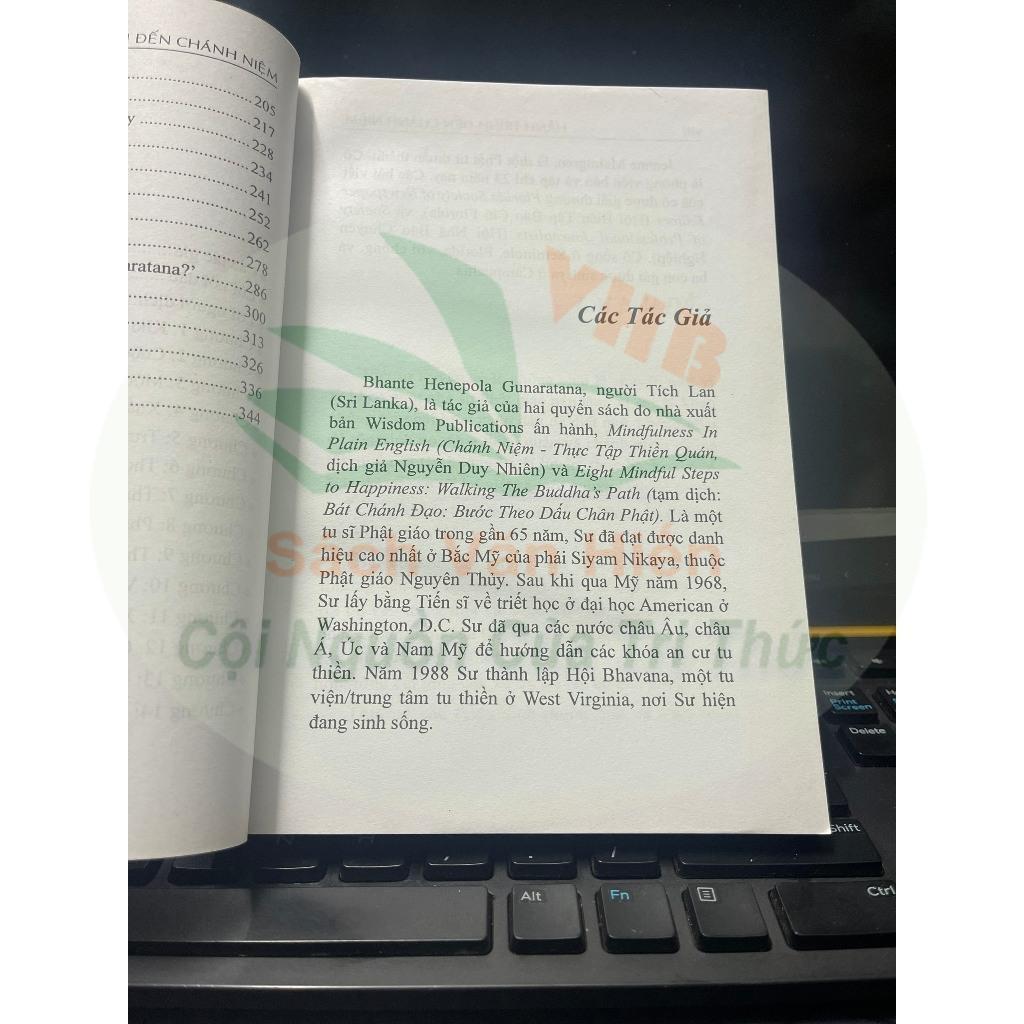 ĐẾN CHÁNH NIỆM
205
217
228
234
241
252
262
278
aratana?' 286
300
313
326
336
344
Các Tác Giả
Bhante Henepola Gunaratana, người Tích Lan
(Sri Lanka), là tác giả của hai quyển sách do nhà xuất
bản Wisdom Publications ấn hành, Mindfulness In
Plain English (Chánh Niệm - Thực Tập Thiền Quán,
dịch giả Nguyễn Duy Nhiên) và Eight Mindful Steps
to Happiness: Walking The Buddha's Path (tạm dịch:
Bát Chánh Đạo: Bước Theo Dấu Chân Phật). Là một
tu sĩ Phật giáo trong gần 65 năm, Sư đã đạt được danh
hiệu cao nhất ở Bắc Mỹ của phái Siyam Nikaya, thuộc
Phật giáo Nguyên Thủy. Sau khi qua Mỹ năm 1968,
Sư lấy bằng Tiến sĩ về triết học ở đại học American ở
Washington, D.C. Sư đã qua các nước châu Âu, châu
Á, Úc và Nam Mỹ để hướng dẫn các khóa an cư tu
thiền. Năm 1988 Sư thành lập Hội Bhavana, một tu
viện/trung tâm tu thiền ở West Virginia, nơi Sư hiện
đang sinh sống.
VHB
Sách Văn Hiến
Cội Nguồn Của Tri Thức
Insert
Print
Screen
Delete
Shift
Alt
Fn
Ctrl